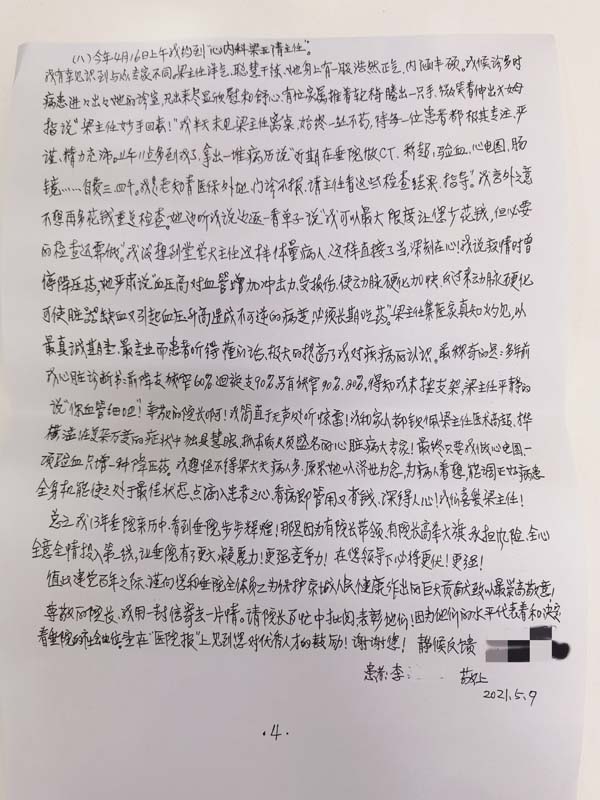 (八)今年4月16日上午我约到"心内科梁 主任"。
我有幸见识到与众专家不同,梁主任洋气、聪慧干练、她身上有一股浩然正气,内涵丰硕。我候诊多时
病患进进出出她的诊室,见出来尽显欣慰和舒心,有位家属推着轮椅腾出一只手,微笑着伸出大姆
指说"梁主任妙手回春!"我半天未见梁主任离桌,始终一丝不苟,待每一位患者都极其专注、严
谨、精力充沛。上午11点多到我了,拿出一堆病历说"近期在垂院做CT、彩超、验血、心电图、肠
镜……自费三、四千。我是老知青医保外地,门诊不报,请主任看这些检查结果,指导"。我言外之意
不想再多花钱重复检查。她边听我说边逐一看单子说"我可以最大限度让您少花钱,但必要
的检查还需做。"我没想到堂堂大主任这样体量病人,这样直接了当,深刻在心!我说教情时曾
停降压药,她严肃说"血压高对血管增加冲击力、受损伤、使动脉硬化加快,反过来动脉硬化
可使脏器缺血又引起血压升高造成不可逆的病变,必须长期吃药。"梁主任集医家真知灼见,以
最真诚期望、最专业而患者听得懂的话,极大的提高了我对疾病的认识。最称奇的是:多年前
我心脏诊断书:前降支狭窄60%迴旋支90%另有狭窄90%、80%,得知我未按支架,梁主任平静的
说"你血管细吧"!尊敬的院长啊!我简直于无声处听惊雷!我和家人都钦佩梁主任医术高超、
在复杂万变的症状中独具慧眼,抓本质久负盛名的心脏病大专家!最终只要我做心电图、一
项验血,只增一种降压药,我想怪不得梁大夫病人多,原来她以济世为怀,为病人着想,能调正好病患
全身机能使之处于最佳状态,点滴入患者之心,看病即管用又省钱,深得人心!我们喜爱梁主任!
总之我13年垂院亲历中,看到垂院步步辉煌!那是因为有院长带领,有院长高举大旗,永担风险、全心
全意全情投入第一线,让垂院有了更大凝聚力!更强竞争力!在您领导下必得更优!更强!
值此建党百年之际,谨向您和垂院全体员工为保护京城人民健康作出的巨大贡献致以最崇高敬意!
尊敬的院长、我用一封信寄去一片情。请院长百忙中批阅、表彰他们!因为他们的水平代表着和决定
着垂院的社会地位。望在"医院报"上见到您对优秀人才的鼓励!谢谢您! 静候反馈
患者:李 敬上
2021.5.9
·4·